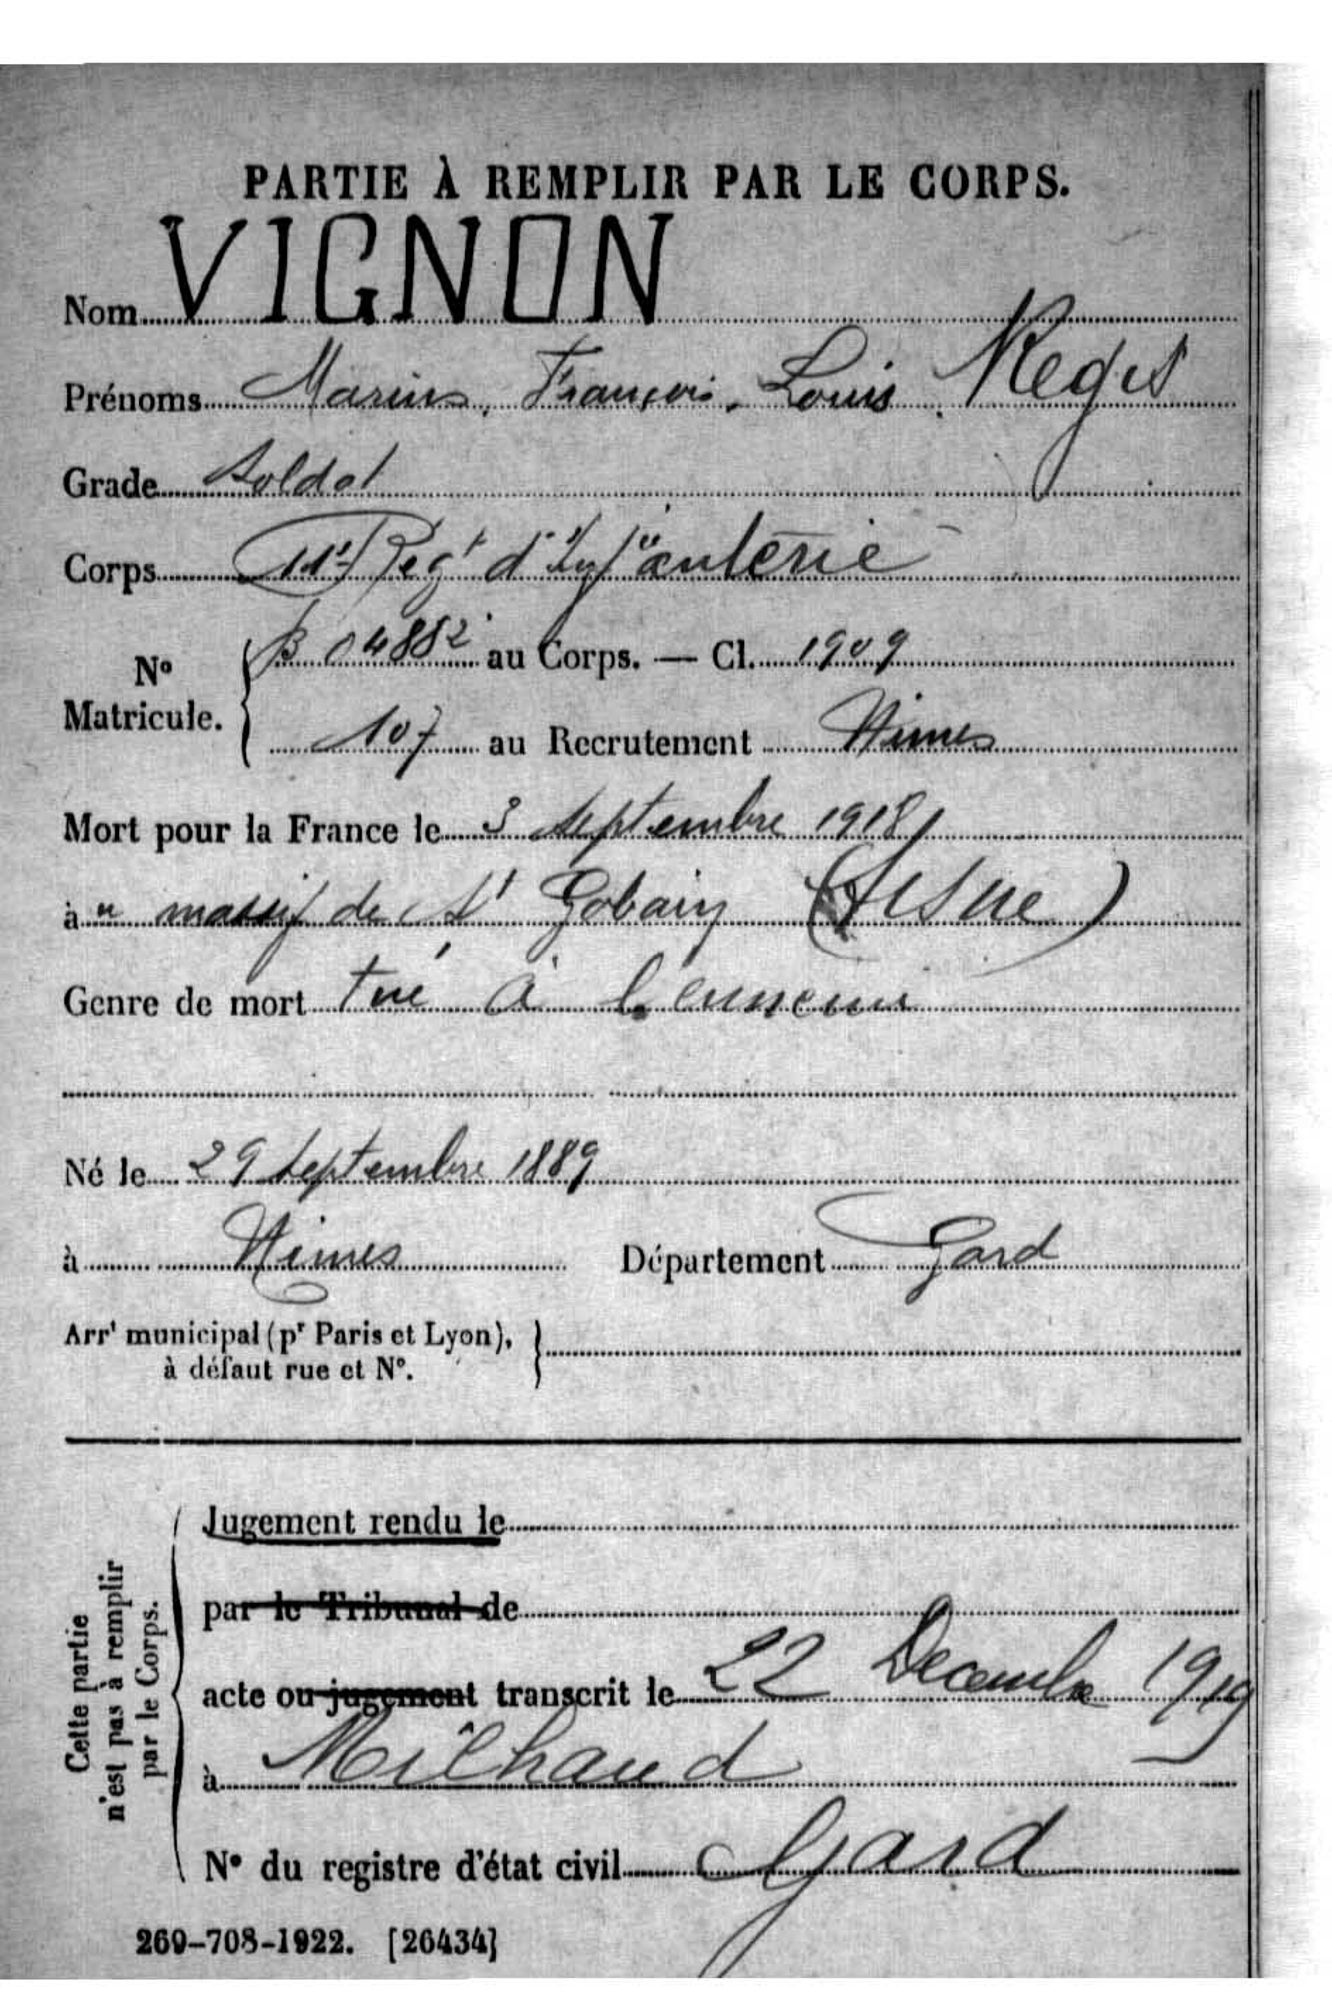 PARTIE À REMPLIR PAR LE CORPS.
Nom VIGNON
Prénoms Marius, François, Louis, Regis
Grade soldat
Corps 11e Regt d'Infanterie
No Matricule. B 04882 au Corps. — Cl. 1909
107 au Recrutement Nimes
Mort pour la France le 3 septembre 1918
à " massif de St Gobain (Aisne)
Genre de mort tué à l'ennemi
Né le 29 septembre 1889
à Nimes Département Gard
Arrt municipal (pr Paris et Lyon),
à défaut rue et No.
Jugement rendu le
par le Tribunal de
acte ou jugement transcrit le 22 Decembre 1919
à Milhaud
No du registre d'état civil Gard
Cette partie
n'est pas à remplir
par le Corps.
269-708-1922. [26434]